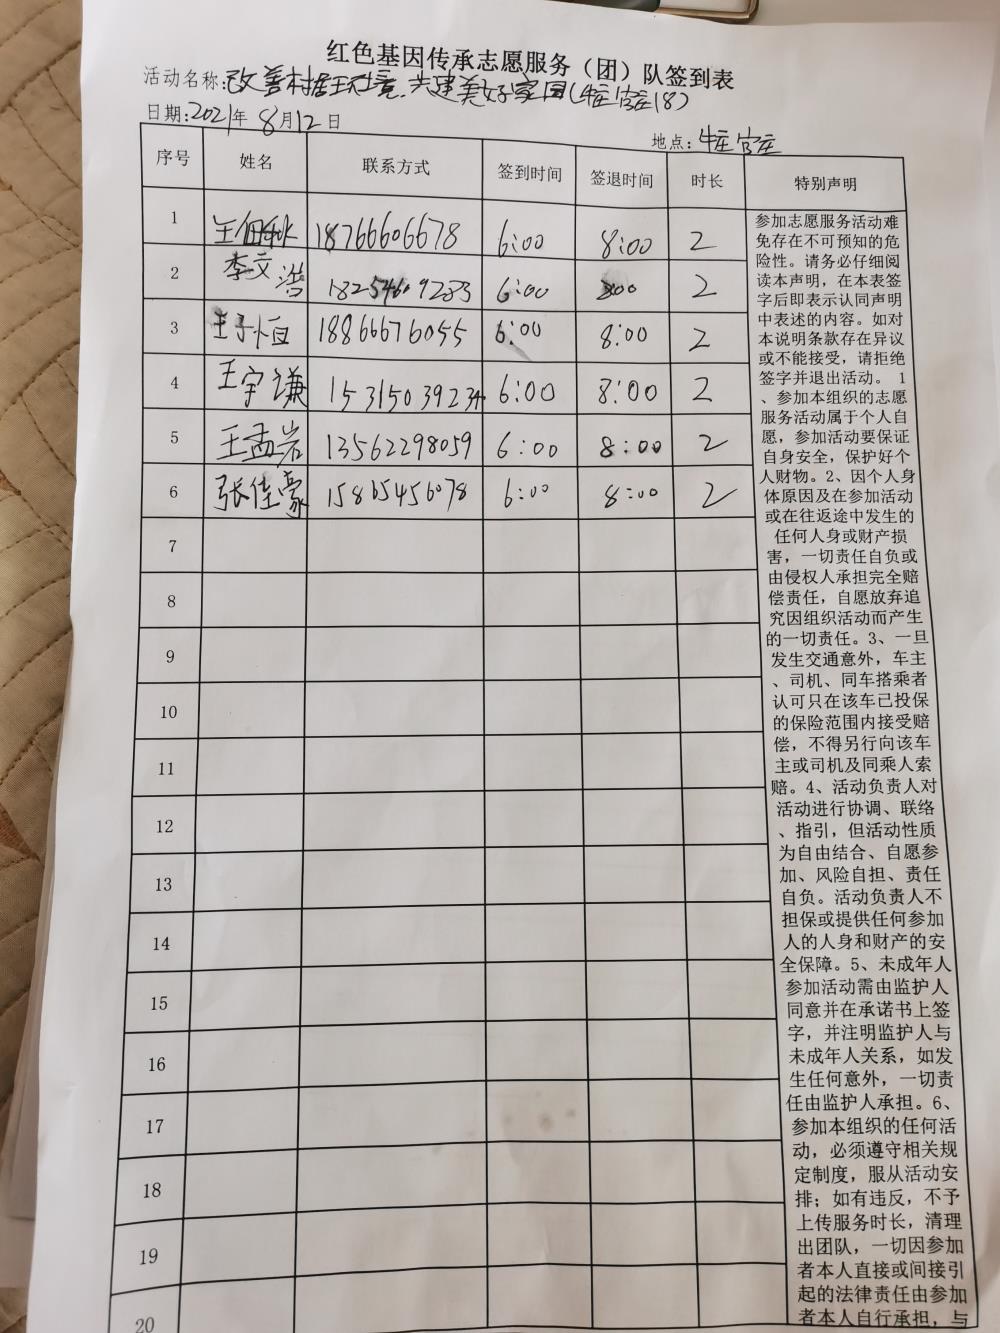 红色基因传承志愿服务（团）队签到表
活动名称:改善村居环境.共建美好家园(牛官庄18)
日期:2021年8月12日
地点:牛官庄
序号 姓名 联系方式 签到时间 签退时间 时长 特别声明
1 王佃秋 18766606678 6:00 8:00 2
2 李文浩 6:00 8:00 2
3 王子恒 18866676055 6:00 8:00 2
4 王宇谦 15315039234 6:00 8:00 2
5 王孟岩 13562298059 6:00 8:00 2
6 张佳豪 15865456078 6:00 8:00 2
7
8
9
10
11
12
13
14
15
16
17
18
19
20
参加志愿服务活动难
免存在不可预知的危
险性。请务必仔细阅
读本声明，在本表签
字后即表示认同声明
中表述的内容。如对
本说明条款存在异议
或不能接受，请拒绝
签字并退出活动。 1
、参加本组织的志愿
服务活动属于个人自
愿，参加活动要保证
自身安全，保护好个
人财物。2、因个人身
体原因及在参加活动
或在往返途中发生的
任何人身或财产损
害，一切责任自负或
由侵权人承担完全赔
偿责任，自愿放弃追
究因组织活动而产生
的一切责任。3、一旦
发生交通意外，车主
、司机、同车搭乘者
认可只在该车已投保
的保险范围内接受赔
偿，不得另行向该车
主或司机及同乘人索
赔。4、活动负责人对
活动进行协调、联络
、指引，但活动性质
为自由结合、自愿参
加、风险自担、责任
自负。活动负责人不
担保或提供任何参加
人的人身和财产的安
全保障。5、未成年人
参加活动需由监护人
同意并在承诺书上签
字，并注明监护人与
未成年人关系，如发
生任何意外，一切责
任由监护人承担。6、
参加本组织的任何活
动，必须遵守相关规
定制度，服从活动安
排；如有违反，不予
上传服务时长，清理
出团队，一切因参加
者本人直接或间接引
起的法律责任由参加
者本人自行承担，与